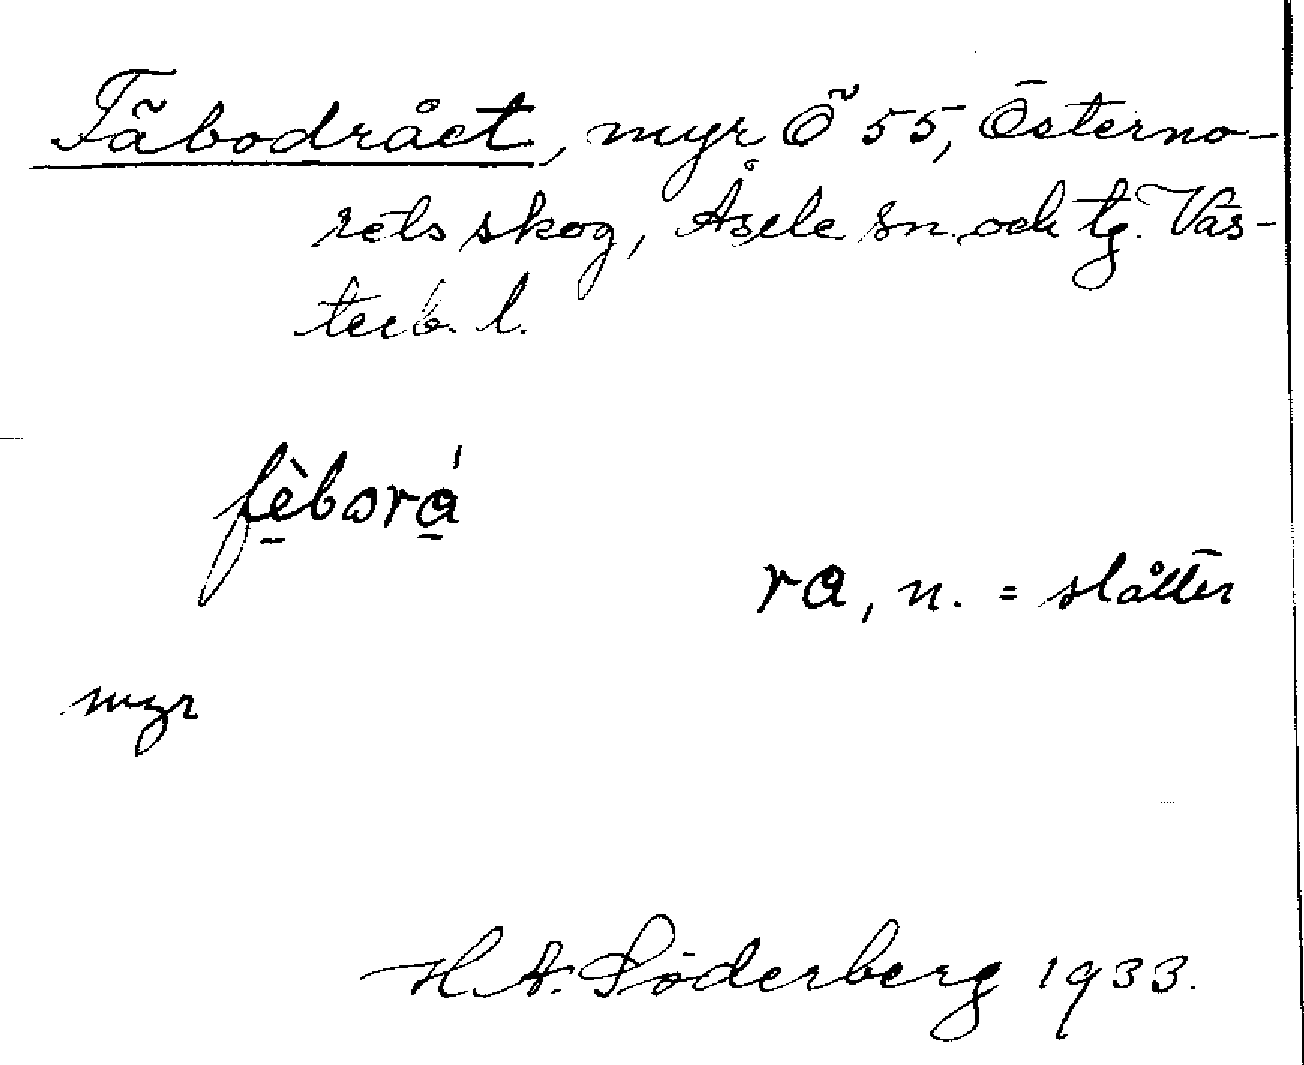 Fäbodrået, myr Ö 55, Österno-
rets skog, Åsele sn. och tg. Väs-
terb. l.
fèborá
ra, n. = slåtter
myr
H. A. Söderberg 1933.